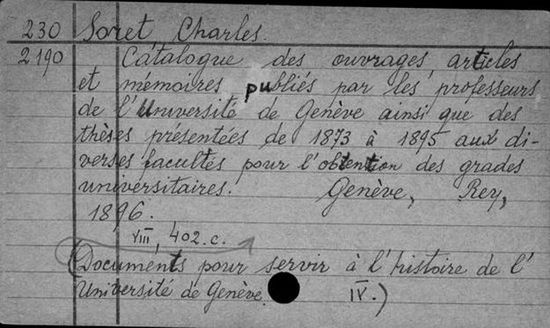 230 Soret, Charles.
2190 Catalogue des ouvrages, articles
et mémoires publiés par les professeurs
de l'Université de Genève ainsi que des
thèses présentées de 1873 à 1895 aux di-
verses facultés pour l'obtention des grades
universitaires. Genève, Rey,
1896.
VIII, 402.c.
(Documents pour servir à l'histoire de l'
Université de Genève. IV.)